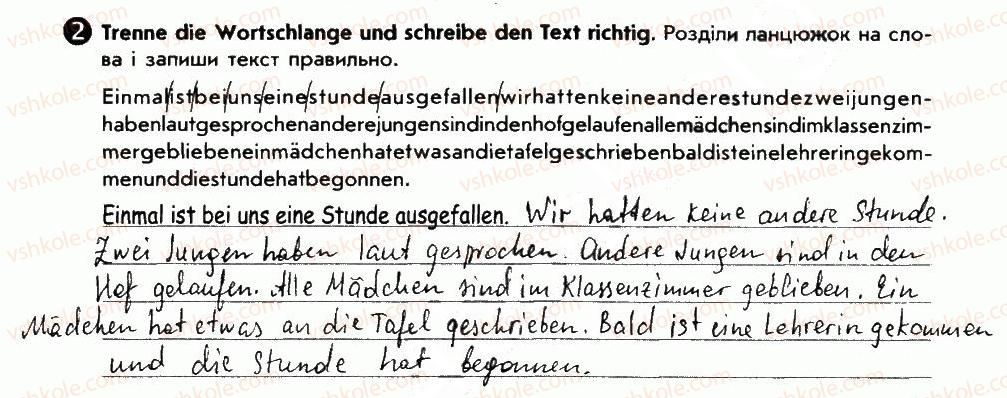 2 Trenne die Wortschlange und schreibe den Text richtig. Розділи ланцюжок на сло-
ва і запиши текст правильно.
Einmal/ist/bei/uns/eine/stunde/ausgefallen/wirhattenkeineanderestundezweijungen-
habenlautgesprochenanderejungensindindenhofgelaufenallemädchensindimklassenzim-
mergebliebeneinmädchenhatetwasandietafelgeschriebenbaldisteinelehreringekom-
menunddiestundehatbegonnen.
Einmal ist bei uns eine Stunde ausgefallen. Wir hatten keine andere Stunde.
Zwei Jungen haben laut gesprochen. Andere Jungen sind in den
Hof gelaufen. Alle Mädchen sind im Klassenzimmer geblieben. Ein
Mädchen hat etwas an die Tafel geschrieben. Bald ist eine Lehrerin gekommen
und die Stunde hat begonnen.